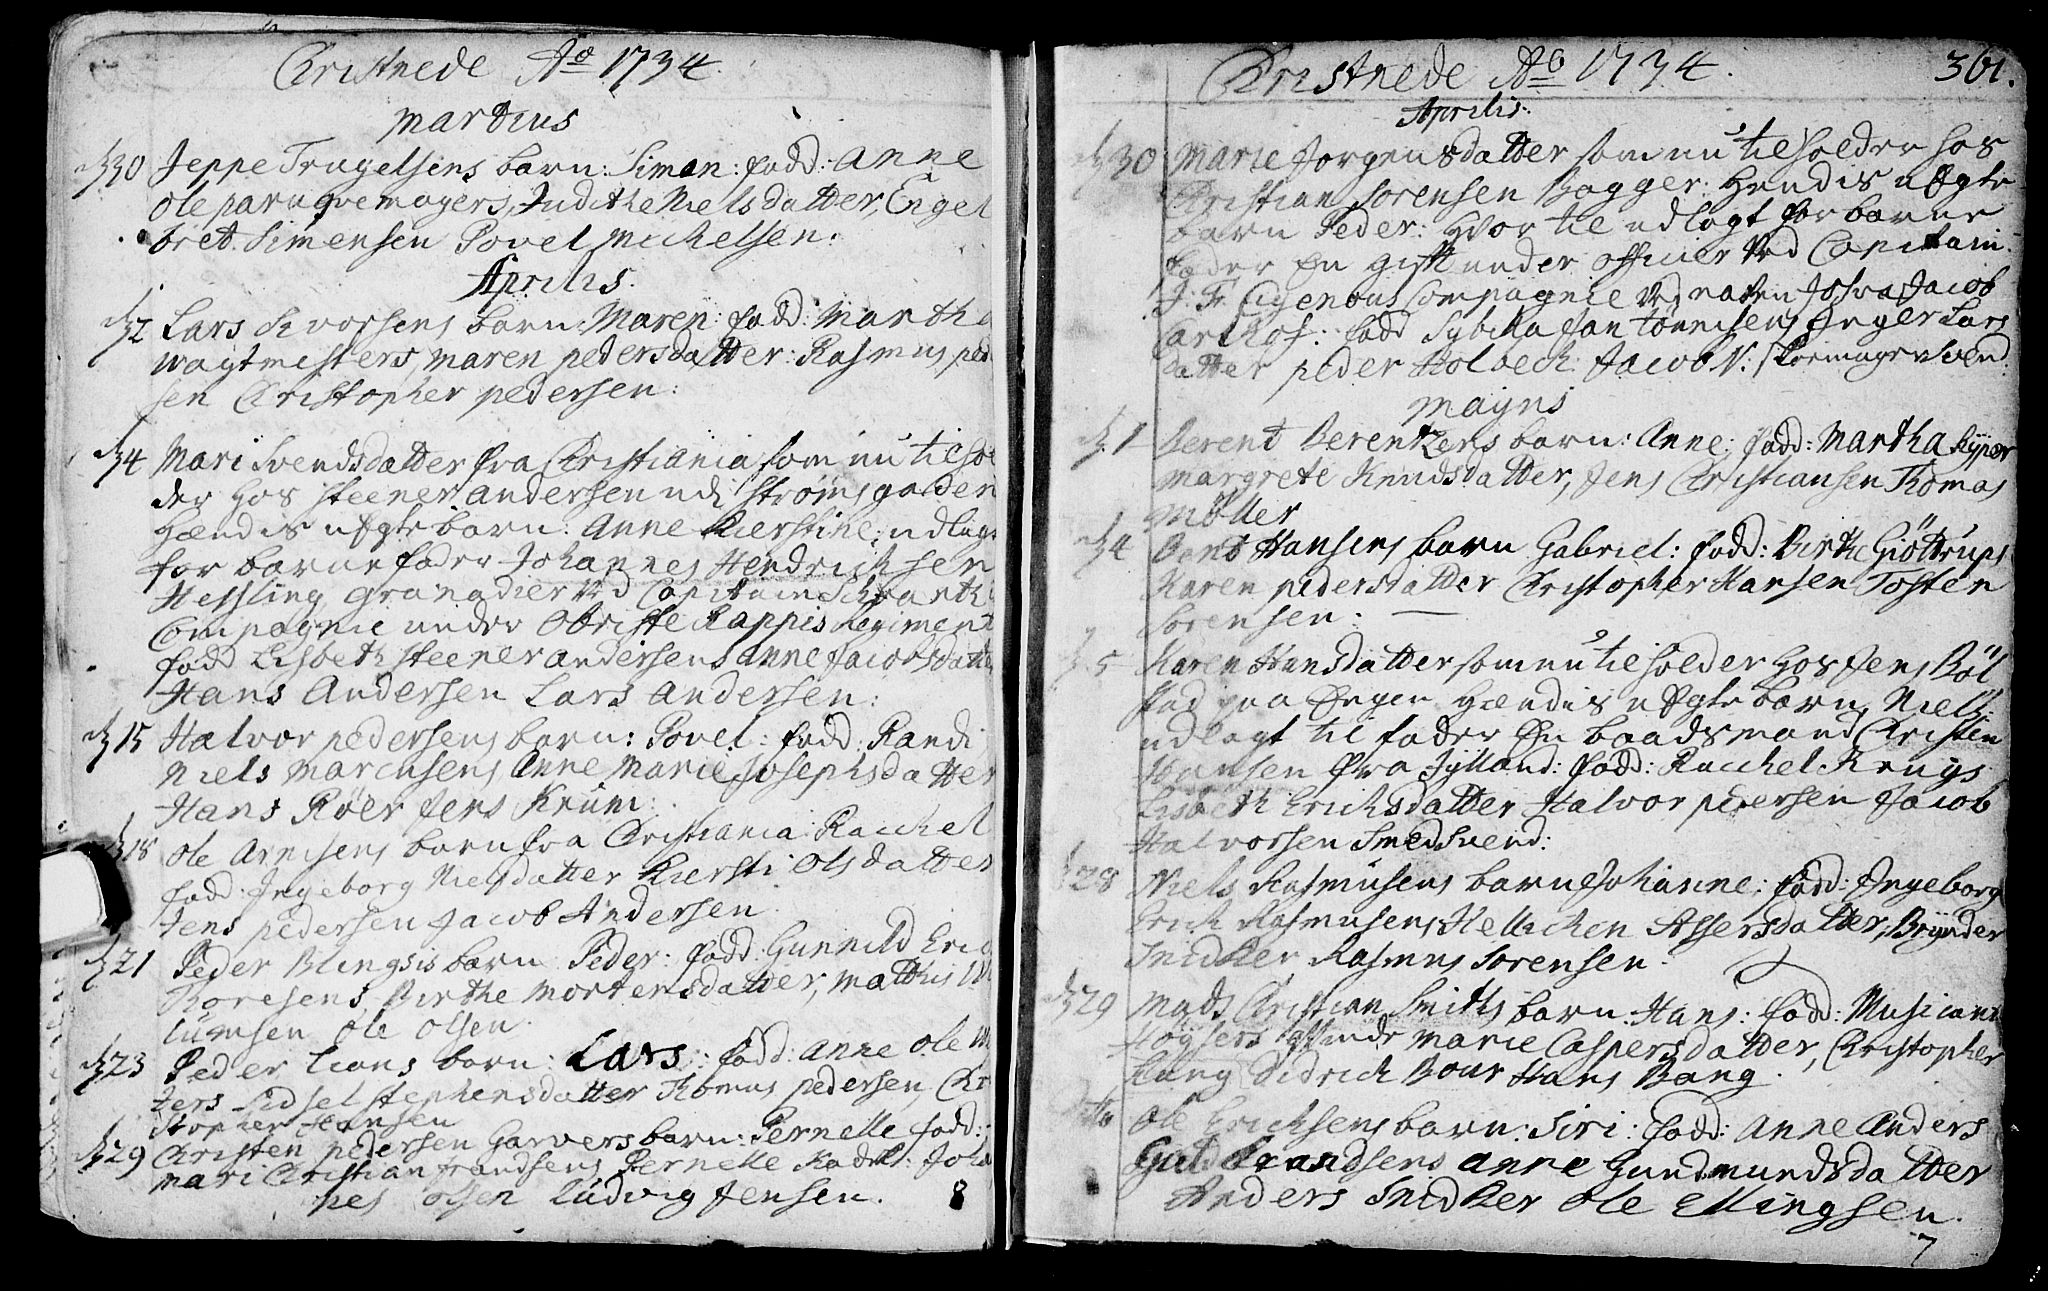 Christnede Ao 1734.
Martius
d 30 Jeppe Trugelsens barn: Simon: fadd: Anne
Ole paruqvemagers, Judithe Nielsdatter, Engel
bret Simensen Povel Michelsen.
Aprilis.
d 2 Lars Sivorsens barn: Maren: fadd: Martha
wagtmesters, maren pedersdatter: Rasmus ped
sen Christopher pedersen:
d 4 Mari Svendsdatter fra Christiania som nu tilhol
der hos Steener Andersen udi Strømsgaden
hendis uægte barn: Anne Kierstine, udlagt
for barne fader Johannes Hendrichsen
Hessling granadier ved Capitain
Compagnie under Obriste Rappis Regiment
fadd Lisbeth Steener andersens Anne Jacobsdatter
Hans Andersen Lars Andersen:
d 15 Halvor pedersens barn: Povel: fadd: Randi
Niels Marensens Anne Marie Josephsdatter
Hans Røer Jens Krum:
d 18 Ole Arnesens barn fra Christiania: Rachel
fadd: Ingeborg Nielsdatter Kiersti Olsdatter
Jens pedersen Jacob Andersen.
d 21 Peder Blingsis barn Peder: fadd: Gunnild Eric
Toresens, Birthe Mortensdatter, Matthis
Ole Olsen.
d 23 Peder barn: Lars: fadd: Anne Ole M
ters Sidsel Stephensdatter Thomas pedersen, Chri
stopher Hansen
d 29 Christen pedersen Garvers barn: Pernelle fadd:
mari Christian frandsens Pernelle Joha
nes Olsen Ludvig Jensen.
8
Christnede Ao 1734.
361.
Aprilis.
d 30 Marie Jorgensdatter som nu tilholder hos
Christian Sorensen Bagger: hendis uægte
barn Peder: hvor til udlagt for barne
fader En gift under officier ved Capitain
J. Fr. Compagnie ved naven Josva Jacob
Carlhof: fadd Sybilla Jan tønnisens Inger Lars
datter peder Holbech: Jacob N: skoemager svend
Mayus
d 1 Berent Berentzens barn: Anne: fadd: Martha
Margrete Knudsdatter, Jens Christiansen Thomas
Møller
d 4 Bent Hansens barn Gabriel: fadd: Birthe Giøttrups
Karen pedersdatter Christopher Hansen Tosten
Sorensen:
d 5 Karen Hansdatter som nu tilholder hos Jens Røl
stad paa Engen hendis uægte barn Niels:
udlagt til fader En baadsmand Christen
Hansen fra Jylland: fadd: Rachel Krugs
Lisbeth Erichsdatter Halvor pedersen Jacob
Halvorsen Smedsvend:
d 28 Niels Rasmusens barn Johanne: fadd: Ingeborg
Erich Rasmusens, Hellichen Assersdatter, Brynder
Snidker Rasmus Sorensen.
d 29 Mads Christian Smiths barn: Hans: fadd: Musicant
Høysers Marie Caspersdatter, Christopher
Lang Didrich Bour Hans Bang.
ditto Ole Erichsens barn: Siri: fadd: Anne Anders
Guldbrandsens Anne Gundmundsdatter
Anders Snidker Ole Ellingsen.
7